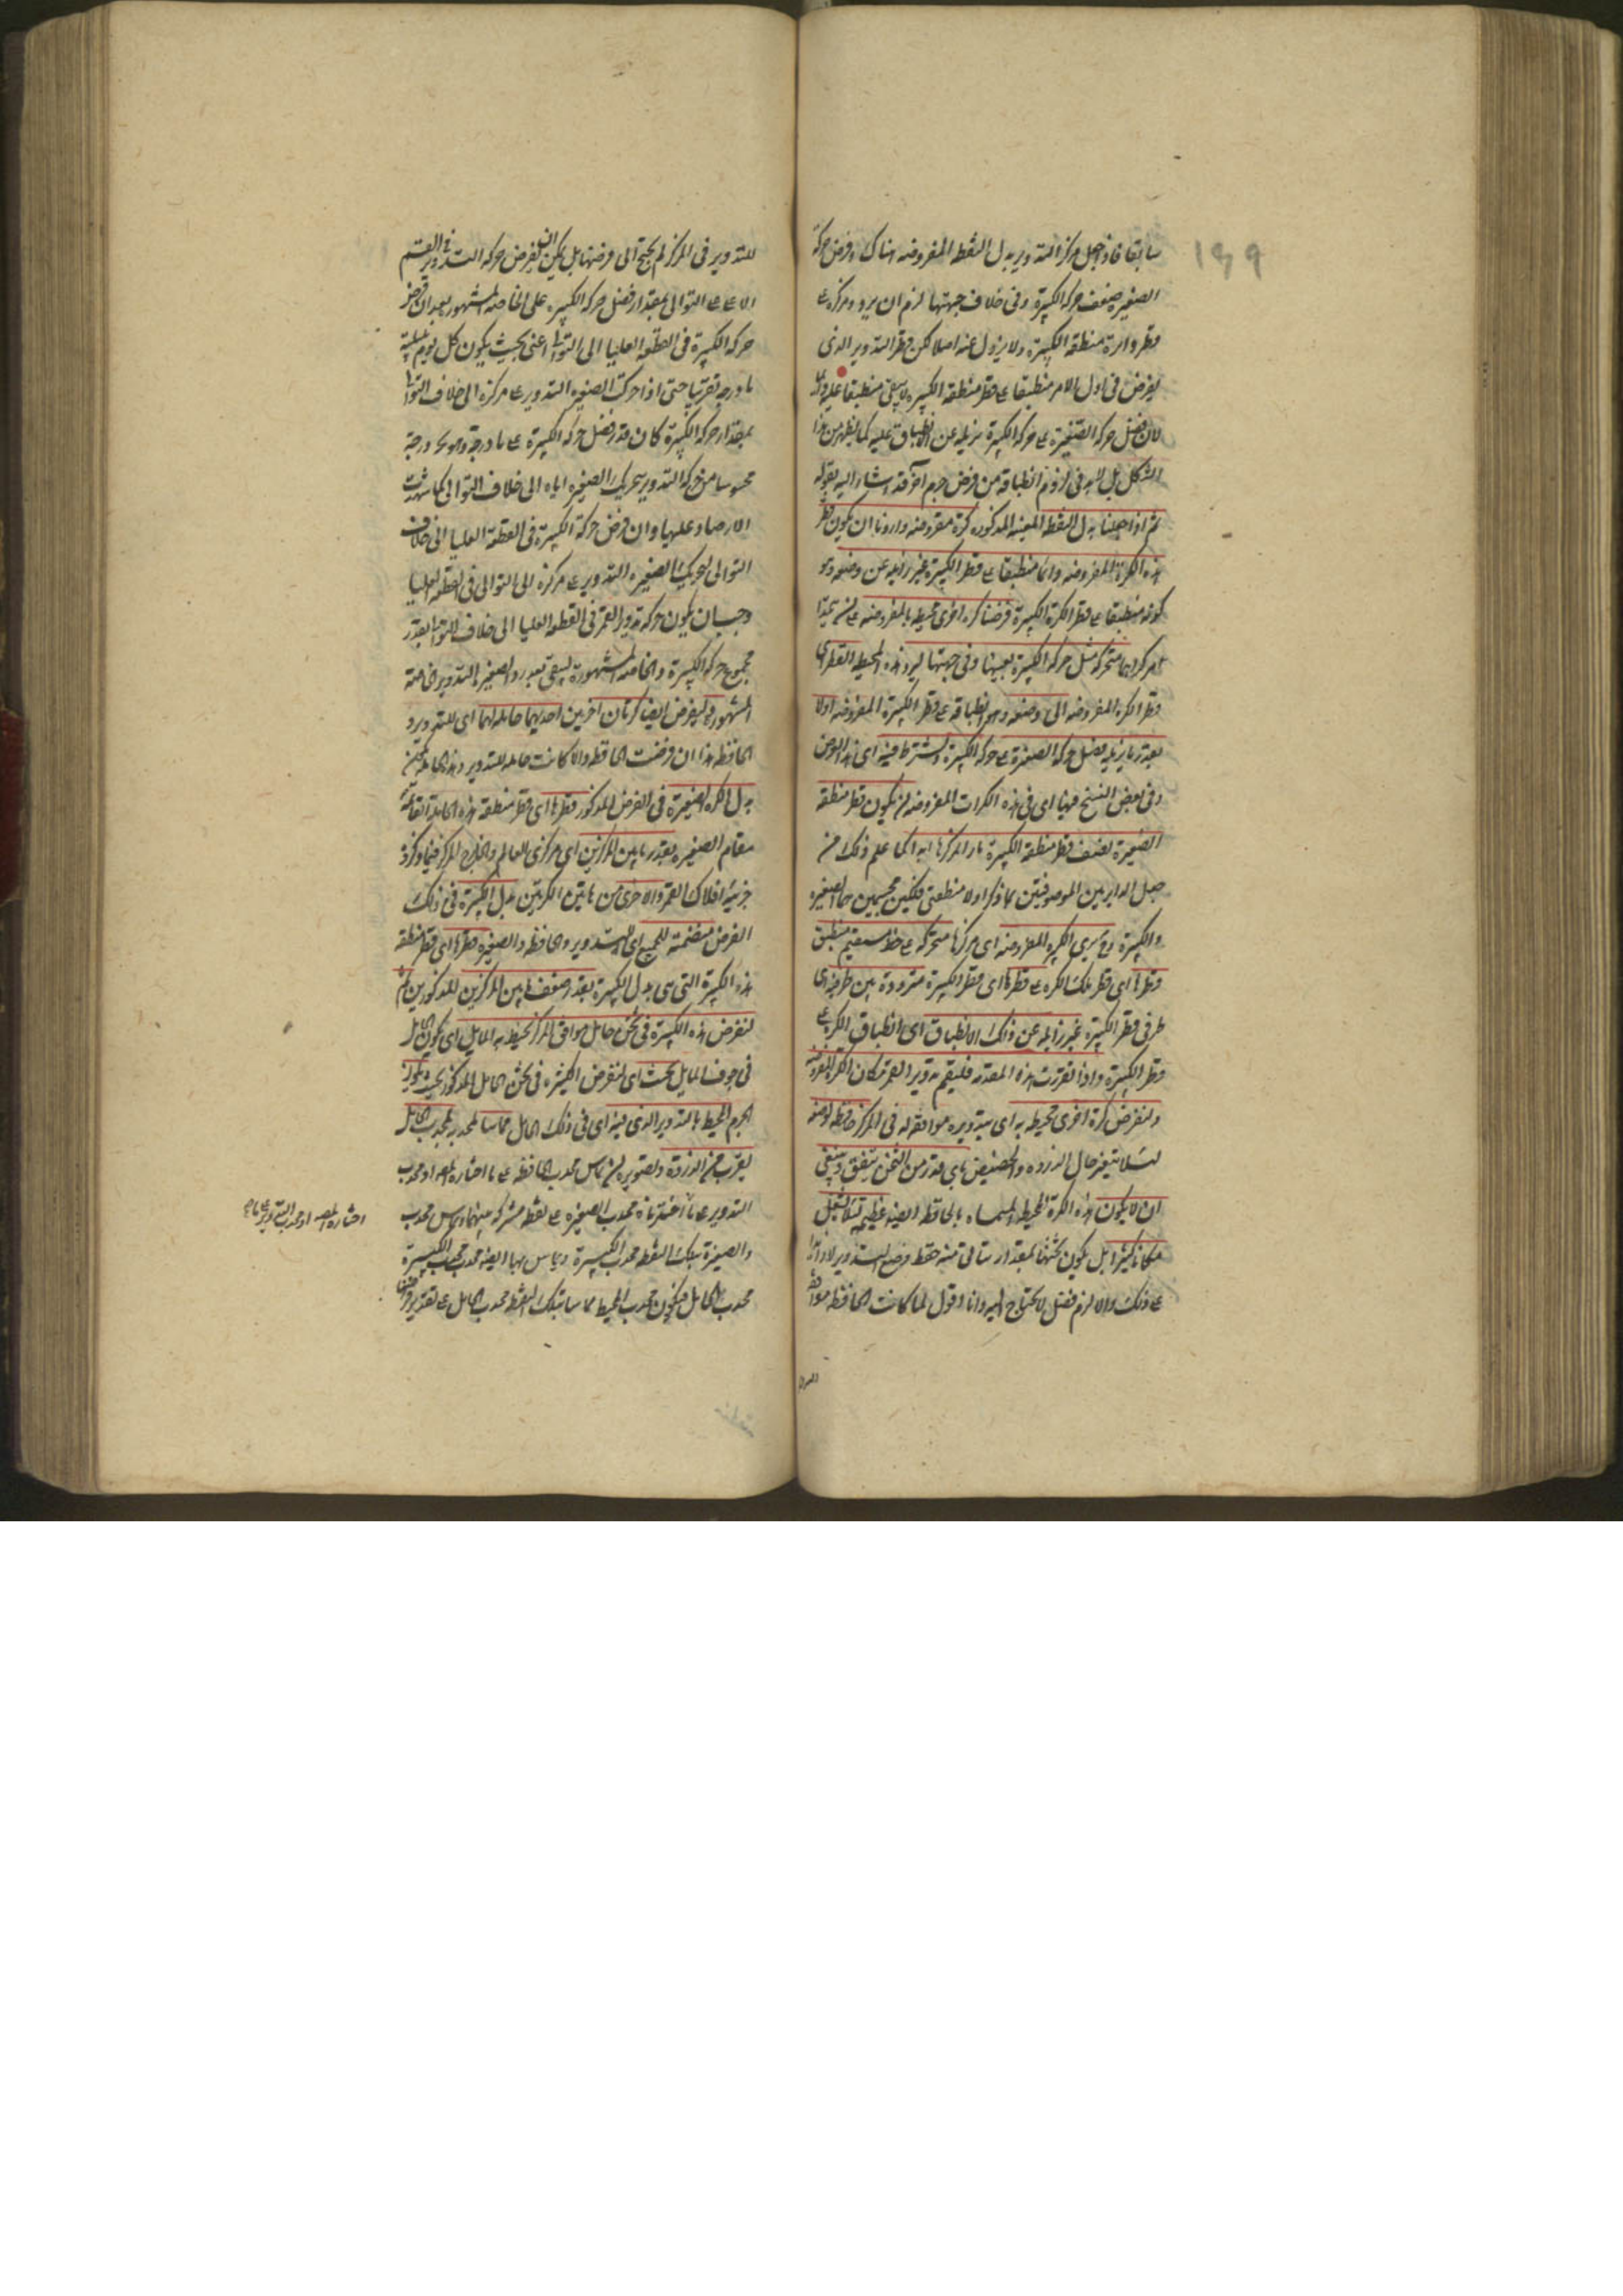 ١٣٩
سابقا فاذا جعل مركز التدوير بدل النقطة المفروضه هناك وفرض حركة
الصغيرة ضعف حركة الكبيرة وفى خلاف جهتها لزم ان يردد مركزه ع
قطر دائرة منطقة الكبيرة ولا يزول عنه اصلا لكن قطر التدوير الذى
يفرض فى اول الامر منطبقا ع قطر منطقة الكبيره لا يبقى منطبقا عليه دائما
لان فضل حركة الصغيرة ع حركة الكبيرة يزيله عن الانطباق عليه كما يظهر من هذا
الشكل بل لابد فى لزوم انطباقه من فرض جرم آخر قد اشار اليه بقوله
ثم اذا جعلنا بدل النقطة المعينه المذكوره كرة مفروضه واردنا ان يكون قطر
هذه الكرة المفروضه دائما منطبقا ع قطر الكبيرة غير زايد عن وضعه وهو
كونه منطبقا ع قطر الكرة الكبيرة فرضنا كره اخرى محيطه بالمفروضه
مركزهما متحركه مثل حركة الكبيرة بعينها وفى جهتها ليرد هذه المحيط القطر اى
قطر الكرة المفروضه الى وضعه وهو انطباقه ع قطر الكبيرة المفروضه اولا
بقدر ما يزيله فضل حركة الصغيرة ع حركة الكبيرة ويشترط فيه اى هذا الوضع
وفى بعض النسخ فيها اى فى هذه الكرات المفروضه ان يكون قطر منطقة
الصغيرة نصف قطر منطقة الكبيرة مارا بمركزها ابدا كما علم ذلك من
جعل الدايرتين الموصوفتين بما ذكر اولا منطقتى فلكين مجسمين هما الصغيره
والكبيرة فيرى الكره المفروضه اى مركزها متحركه ع خط مستقيم منطبق
قطرها اى قطر تلك الكره ع قطرها اى قطر الكبيرة مترددة بين طرفيه اى
طرفى قطر الكبيرة غير زايله عن ذلك الانطباق اى انطباق الكره ع
قطر الكبيرة واذا تقررت هذه المقدمه فليقم تدوير القمر مكان الكرة المفروضه
ولنفرض كرة اخرى محيطه به اى بتدويره موافقه له فى المركز حافظه لوضعه
لئلا يتغير حال الذروه والحضيض باى قدر من الثخن يتفق وينبغى
ان لا يكون هذه الكرة المحيطه المسماه بالحافظه ايضا عظيمه لئلا يشغل
مكانا كثيرا بل يكون ثخنها بمقدار يتأتى منه حفظ وضع التدوير لا ازيد
ع ذلك والا لزم فضل لا يحتاج اليه وانا اقول لما كانت الحافظه موافقه
للتدوير فى المركز لم يحتج الى فرضها بل يمكن ان يفرض حركة التدوير فى القسم
الاعلى ع التوالى بمقدار فضل حركة الكبيره على الخاصه المشهوره بعد ان فرض
حركة الكبيرة فى القطعة العليا الى التوالى اعنى بحيث يكون كل يوم بليلته
يا درجه تقريبا حتى اذا حركت الصغيرة التدوير ع مركزه الى خلاف التوالى
بمقدار حركة الكبيرة كان قدر فضل حركة الكبيرة ع يا درجة وهو يج درجة
محسوسا من حركة التدوير بتحريك الصغيره اياه الى خلاف التوالى كما شهدت
الارصاد عليها وان فرض حركة الكبيرة فى القطعة العليا الى خلاف
التوالى لتحريك الصغيره التدوير ع مركزه الى التوالى فى القطعه العليا
وجب ان يكون حركة تدوير القمر فى القطعة العليا الى خلاف التوالى بقدر
مجموع حركة الكبيرة والخاصه المشهورة ليبقى بعد رد الصغيره التدوير خاصته
المشهوره وليفرض ايضا كرتان اخريين احديهما حامله لهما اى للتدوير و
الحافظه هذا ان فرضت الحافظه والا كانت حامله للتدوير وهذه الحامله هى
بدل الكره الصغيرة فى الفرض المذكور قطرها اى قطر منطقة هذه الحامله القائمه
مقام الصغيره بقدر ما بين المركزين اى مركزى العالم والخارج المركز فيما ذكر فى
جزئية افلاك القمر والاخرى من هاتين الكرتين بدل الكبيرة فى ذلك
الفرض متضمنة للجميع اى التدوير والحافظه والصغيره قطرها اى قطر منطقة
هذه الكبيرة التى هى بدل الكبيرة بقدر ضعف ما بين المركزين المذكورين ثم
لنفرض هذه الكبيرة فى ثخن حامل موافق المركز يحيط به المايل اى يكون الحامل
فى جوف المايل بحيث اى لنفرض الكبيره فى ثخن الحامل المذكور بحيث يكون
الجرم المحيط بالتدوير الذى فيه اى فى ذلك الحامل مماسا لمحدب الحامل
بقرب من الذروة وتصويره ان يماس محدب الحافظه ع ما اختاره المصـ او محدب
التدوير ع ما اخترناه محدب الصغيره ع نقطة مشتركه بينهما ويماس محدب
والصغيرة بتلك النقطه محدب الكبيرة ويماس بها ايضا محدب الكبيرة
محدب الحامل فيكون محدب المحيط مماسا بتلك النقطة محدب الحامل ع تقدير فرضه
اختاره المصـ او محدب التدوير ع ما